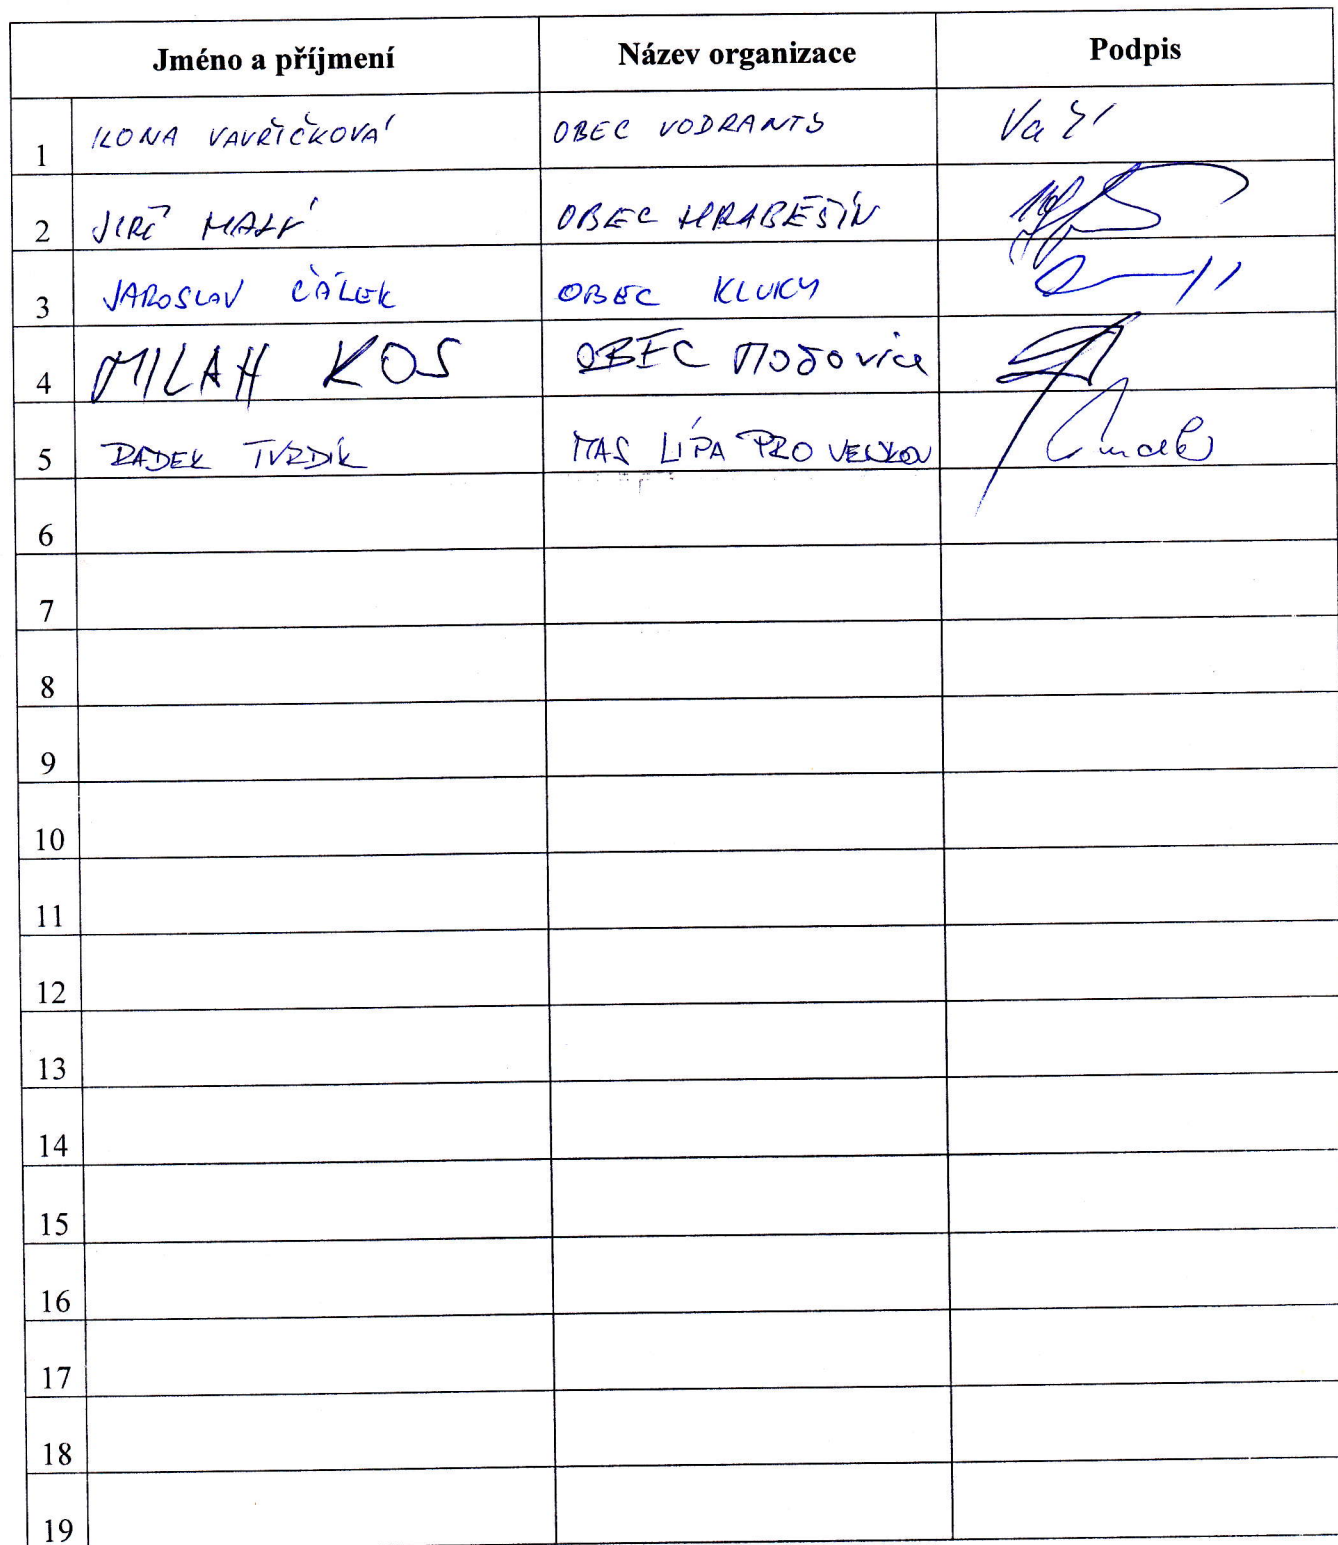 Jméno a příjmení Název organizace Podpis
1 ILONA VAVŘIČKOVÁ OBEC VODRANTY
2 JIŘÍ MALÝ OBEC HRABĚŠÍN
3 JAROSLAV ČÁLEK OBEC KLUKY
4 MILAN KOS OBEC
5 RADEK TVRDÍK MAS LÍPA PRO VENKOV
6
7
8
9
10
11
12
13
14
15
16
17
18
19